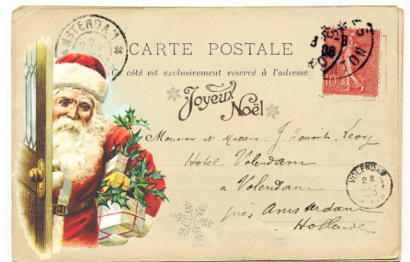 AMSTERDAM
CARTE POSTALE
Ce côté est exclusivement réservé à l'adresse
Joyeux
Noël
Monsieur et Madame J. Benoit-Levy
Hotel Volendam
à Volendam
près Amsterdam
Hollande
VOLENDAM